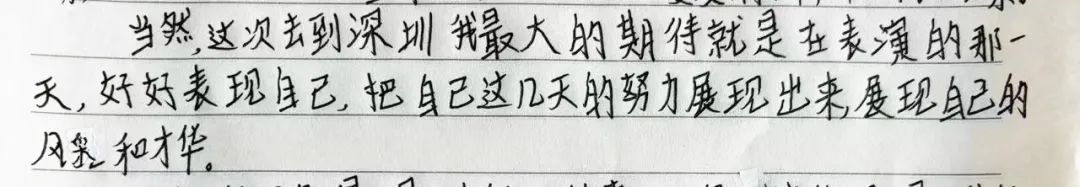 当然,这次去到深圳我最大的期待就是在表演的那一
天,好好表现自己,把自己这几天的努力展现出来,展现自己的
风采和才华。